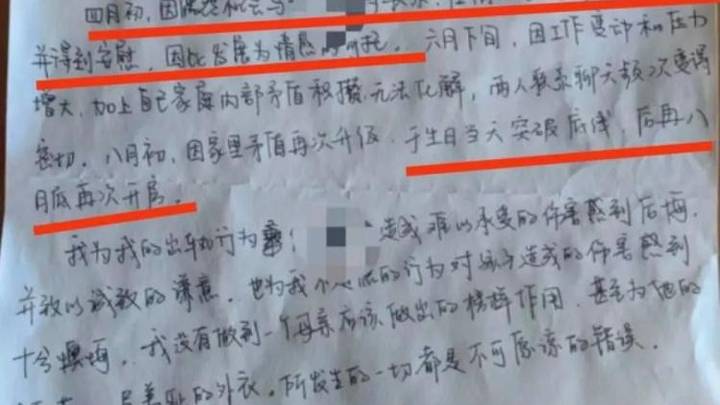 四月初,因
并得到安慰,因此发展为情感的 。六月下旬,因工作变动和压力
增大,加上自己家庭内部矛盾积攒无法化解,两人联系聊天频次变得
密切。八月初,因家里矛盾再次升级,于生日当天突破底线,后再八
月底再次开房。
我为我的出轨行为 造成难以承受的伤害感到后悔,
并致以诚致的谦意,也为我 的行为对孩子造成的伤害感到
十分懊悔,我没有做到一个母亲应该做出的榜样作用,甚至为他的
的外衣。所发生的一切都是不可原谅的错误。